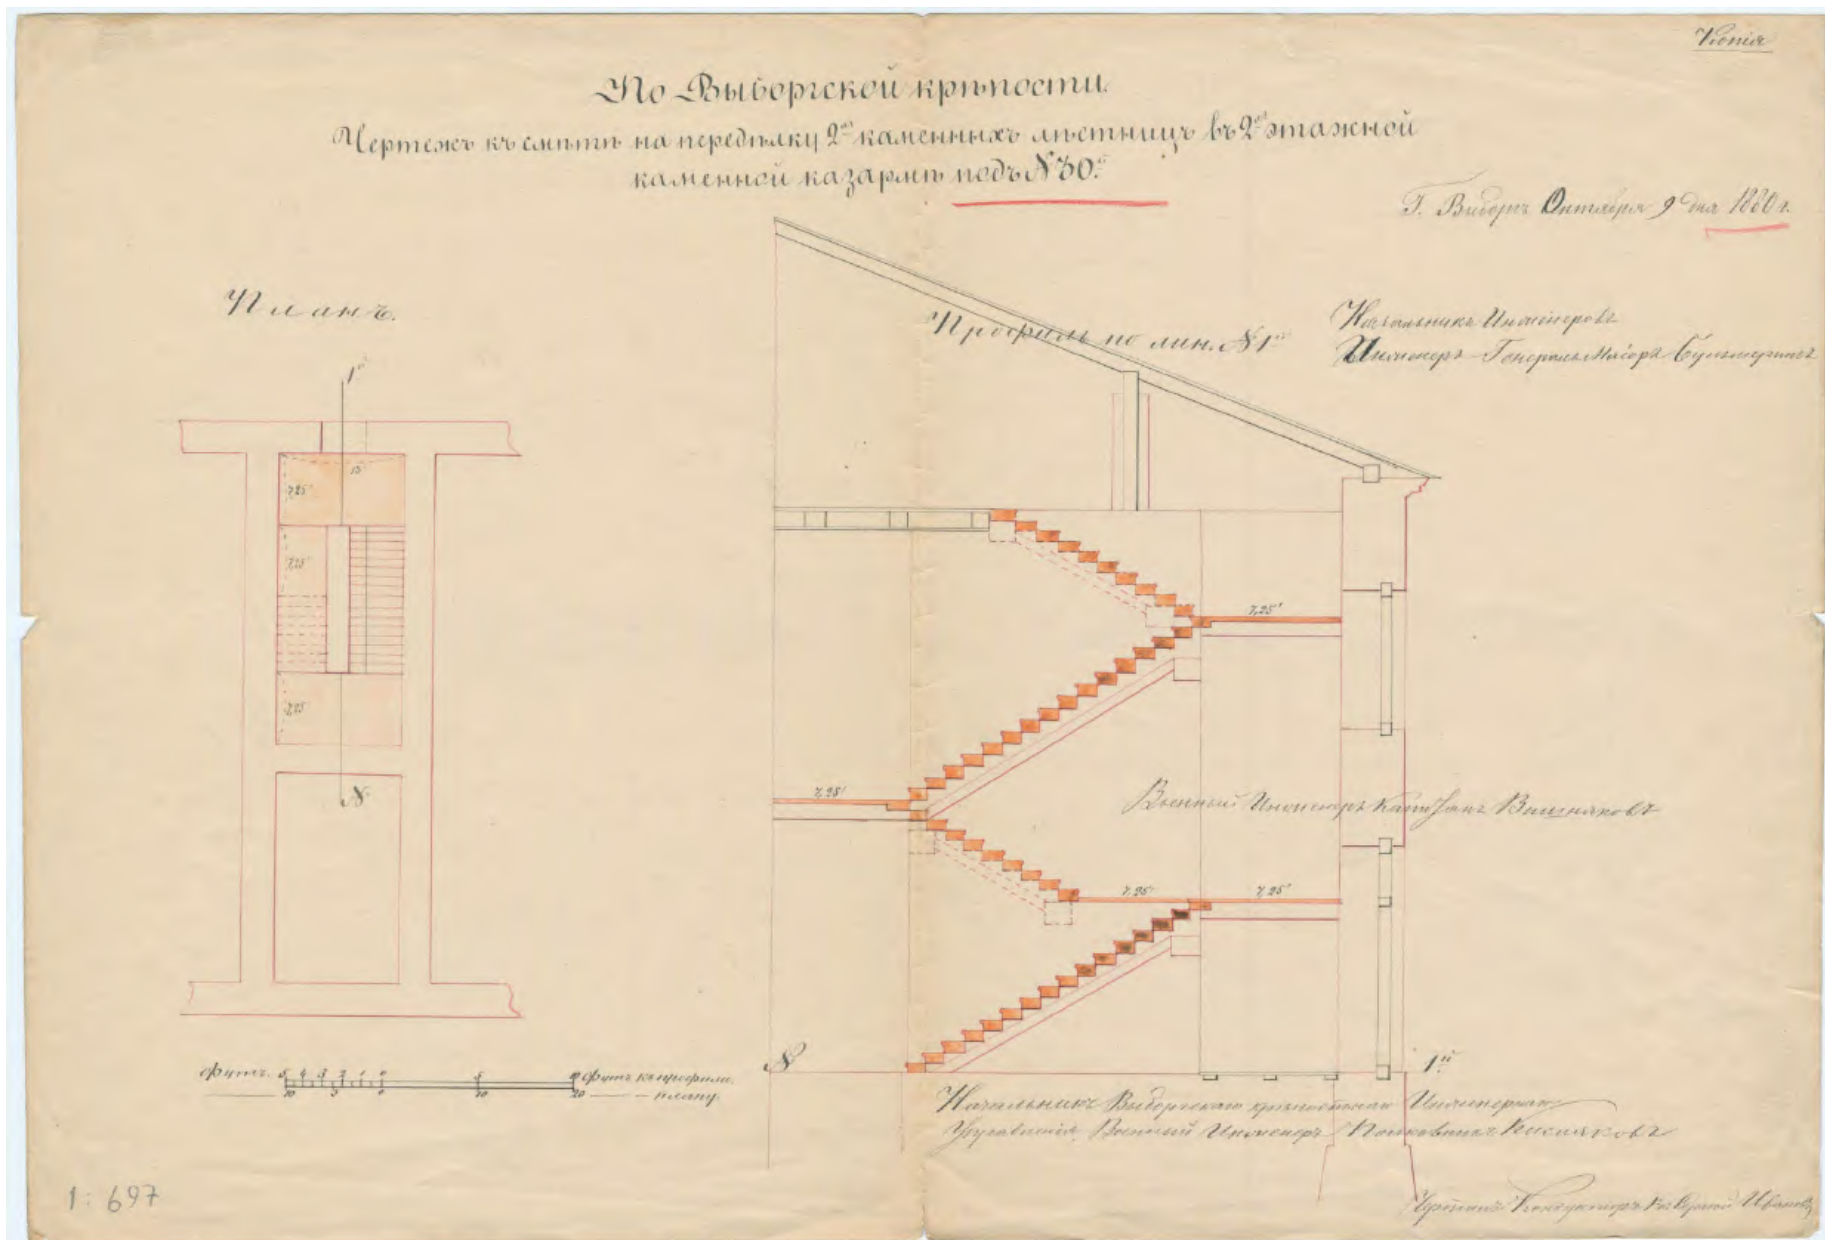 Копія
По Выборгской крѣпости.
Чертежъ къ смѣтѣ на передѣлку 2хъ каменныхъ лѣстницъ въ 2хъ этажной
каменной казармѣ подъ № 30й
Г. Выборгъ Октября 9 дня 1880 г.
Планъ.
Профиль по лин. № 1й
Начальникъ Инженеровъ
Инженеръ-Генералъ-Маіоръ
1й
15'
7,25'
7,25'
7,25'
№
7,25'
7,25'
7,25'
7,25'
Военный Инженеръ Капитанъ Вишняковъ
№
1й
футъ. 5 4 3 2 1 0 5 10 футъ къ профили.
10 5 0 10 20 плану.
Начальникъ Выборгскаго крѣпостнаго Инженернаго
Управленія, Военный Инженеръ Полковникъ Кисляковъ
Чертилъ Кондукторъ Ивановъ
1: 697